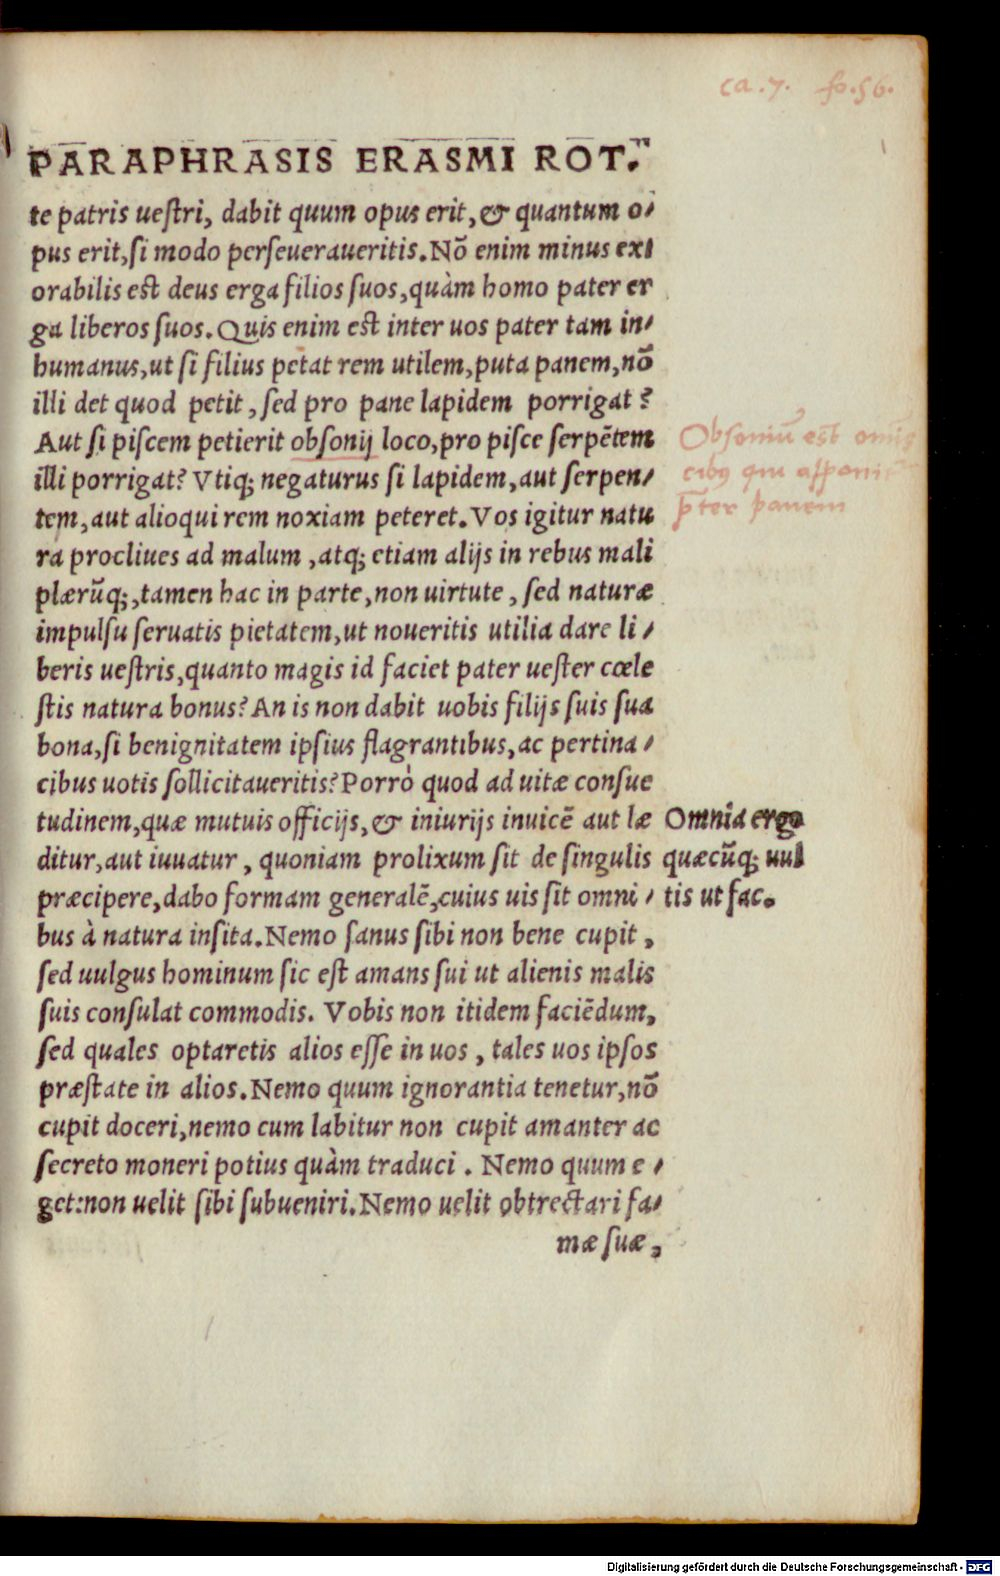 ca.7. fo.56.
PARAPHRASIS ERASMI ROT.
te patris ueſtri, dabit quum opus erit, & quantum o⸗
pus erit, ſi modo perſeueraueritis. Nō enim minus ex⸗
orabilis est deus erga filios ſuos, quàm homo pater er
ga liberos ſuos. Quis enim est inter uos pater tam in⸗
humanus, ut ſi filius petat rem utilem, puta panem, nō
illi det quod petit, ſed pro pane lapidem porrigat?
Aut ſi piſcem petierit obſonij loco, pro piſce ſerpētem
illi porrigat? Vtiq; negaturus ſi lapidem, aut ſerpen⸗
tem, aut alioqui rem noxiam peteret. Vos igitur natu
ra procliues ad malum, atq; etiam alijs in rebus mali
plærūq;, tamen hac in parte, non uirtute, ſed naturæ
impulſu ſeruatis pietatem, ut noueritis utilia dare li⸗
beris ueſtris, quanto magis id faciet pater ueſter cœle
ſtis natura bonus? An is non dabit uobis filijs ſuis ſua
bona, ſi benignitatem ipſius flagrantibus, ac pertina⸗
cibus uotis ſollicitaueritis? Porrò quod ad uitæ conſue
tudinem, quæ mutuis officijs, & iniurijs inuicē aut læ
ditur, aut iuuatur, quoniam prolixum ſit de ſingulis
præcipere, dabo formam generalē, cuius uis ſit omni⸗
bus à natura inſita. Nemo ſanus ſibi non bene cupit,
ſed uulgus hominum ſic eſt amans ſui ut alienis malis
ſuis conſulat commodis. Vobis non itidem faciēdum,
ſed quales optaretis alios eſſe in uos, tales uos ipſos
præſtate in alios. Nemo quum ignorantia tenetur, nō
cupit doceri, nemo cum labitur non cupit amanter ac
ſecreto moneri potius quàm traduci. Nemo quum e⸗
get: non uelit ſibi ſubueniri. Nemo uelit obtrectari fa⸗
mæ ſuæ,
Obſoniū est omīs
cibꝰ qui
p̄ter panem
Omnia ergo
quæcūq; uul
tis ut fac.
Digitalisierung gefördert durch die Deutsche Forschungsgemeinschaft - DFG